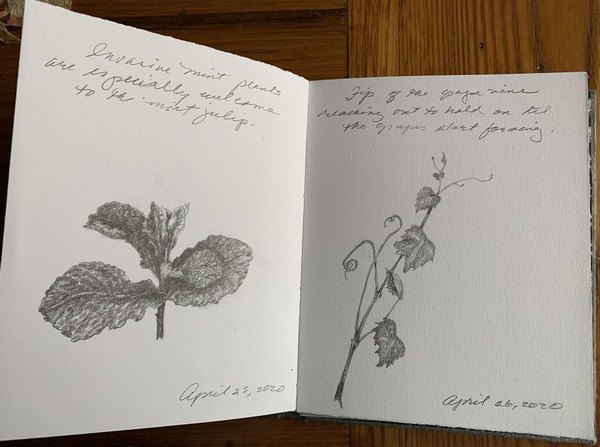 Invasive mint plants
are especially welcome
to the mint julip.
April 25, 2020
Tip of the grape vine
reaching out to hold on til
the grapes start forming.
April 26, 2020